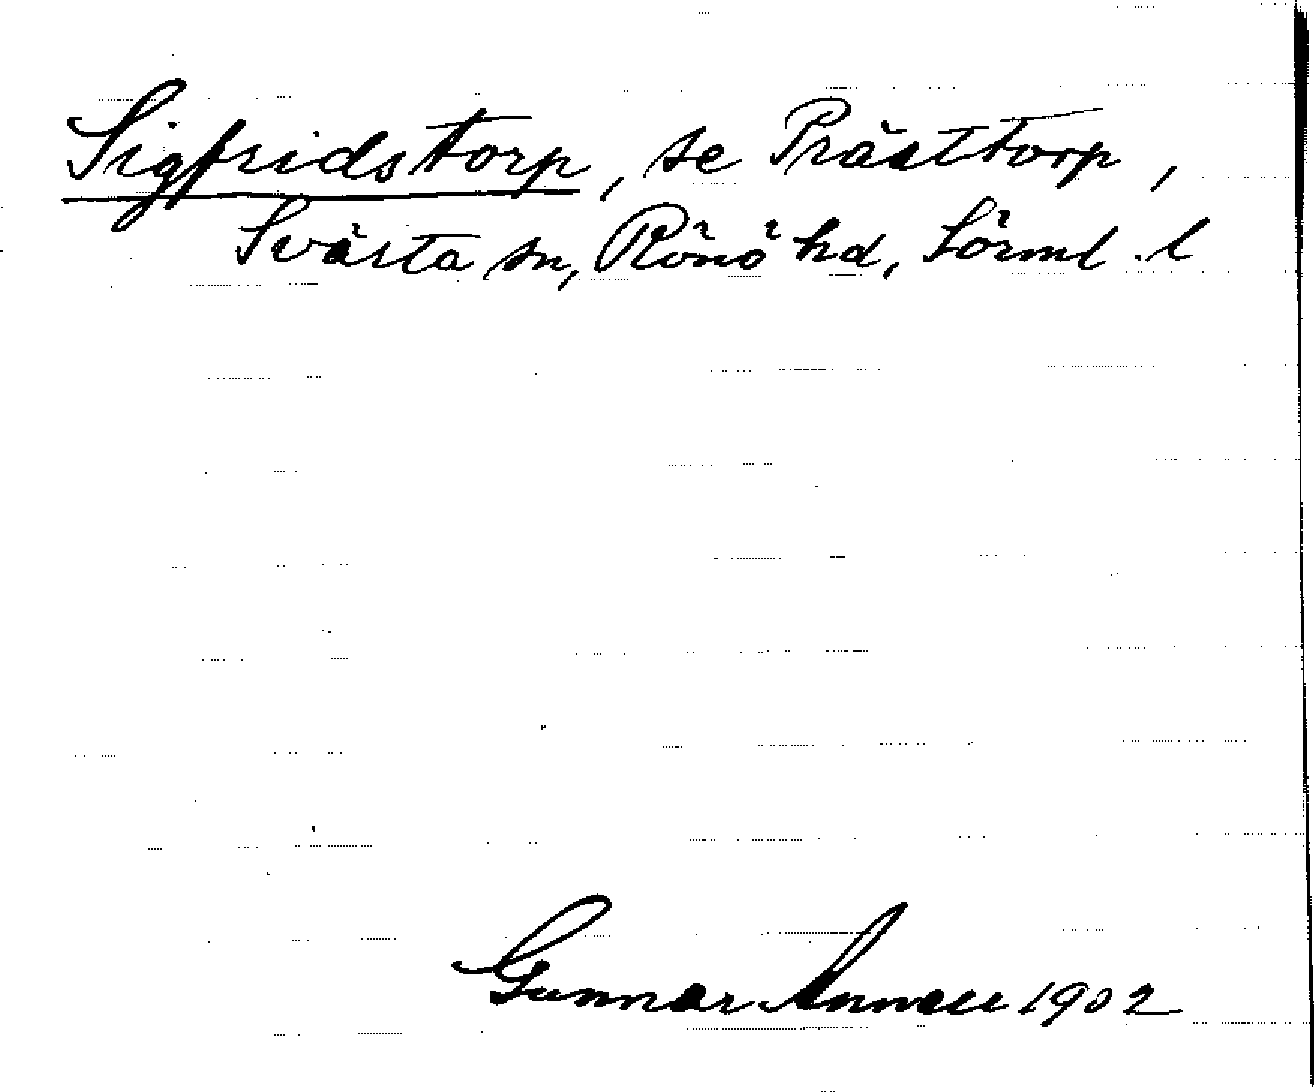 Sigfridstorp, se Prästtorp,
Svärta sn, Rönö hd, Sörml. l
Gunnar Annell 1902